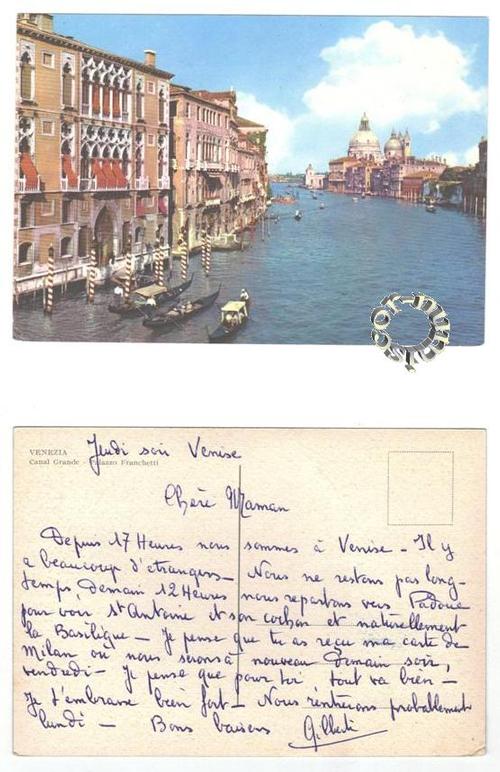 cor-numuscor
VENEZIA
Canal Grande - Palazzo Franchetti
Jeudi soir Venise
Chère Maman
Depuis 17 Heures nous sommes à Venise - Il y
a beaucoup d'etrangers - Nous ne restons pas long-
temps, Demain 12 Heures nous repartons vers Padoue
pour voir st Antoine et son cochon et naturellement
la Basilique - Je pense que tu as reçu ma carte de
Milan où nous serons à nouveau Demain soir,
vendredi - Je pense que pour toi tout va bien -
Je t'embrasse bien fort - Nous rentrerons probablement
lundi - Bons baisers Gilberte